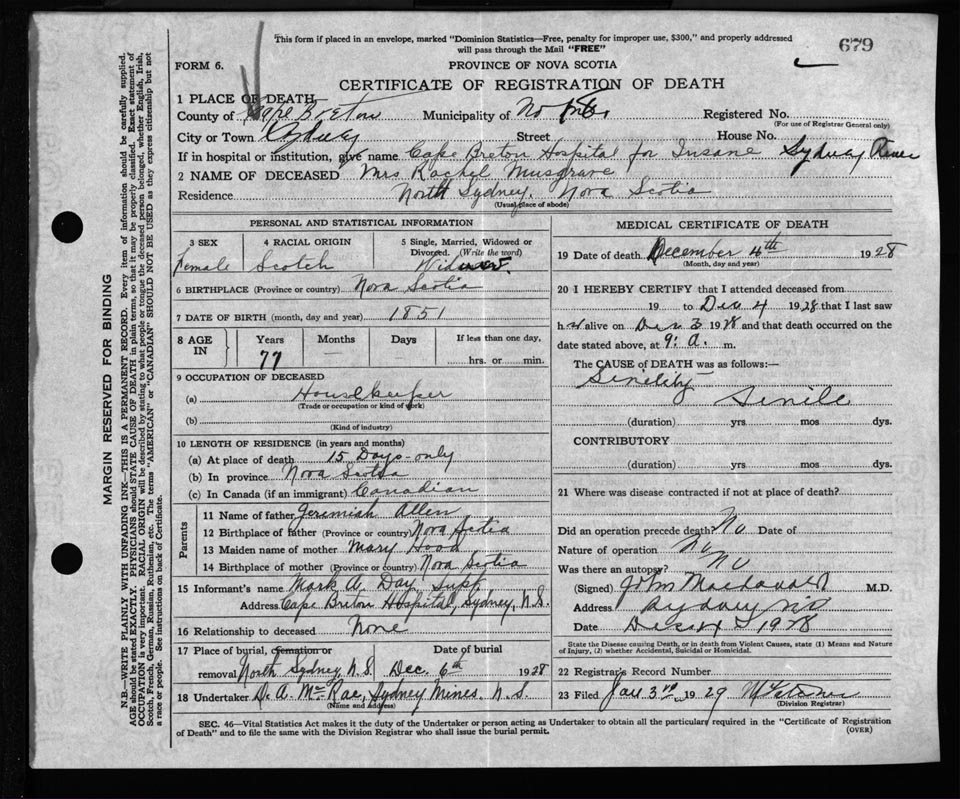 This form if placed in an envelope, marked "Dominion Statistics—Free, penalty for improper use, $300," and properly addressed
will pass through the Mail "FREE"
679
FORM 6.
PROVINCE OF NOVA SCOTIA
CERTIFICATE OF REGISTRATION OF DEATH
1 PLACE OF DEATH
County of Cape Breton Municipality of No Registered No.
(For use of Registrar General only)
City or Town Sydney Street House No.
If in hospital or institution, give name Cape Breton Hospital for Insane Sydney River
2 NAME OF DECEASED Mrs Rachel Musgrave
Residence North Sydney, Nova Scotia
(Usual place of abode)
PERSONAL AND STATISTICAL INFORMATION
3 SEX 4 RACIAL ORIGIN 5 Single, Married, Widowed or
Divorced. (Write the word)
Female Scotch Widow
6 BIRTHPLACE (Province or country) Nova Scotia
7 DATE OF BIRTH (month, day and year) 1851
8 AGE IN Years Months Days If less than one day,
77 — hrs. or min.
9 OCCUPATION OF DECEASED
(a) Housekeeper
(Trade or occupation or kind of work)
(b)
(Kind of industry)
10 LENGTH OF RESIDENCE (in years and months)
(a) At place of death 15 Days-only
(b) In province Nova Scotia
(c) In Canada (if an immigrant) Canadian
Parents
11 Name of father Jeremiah Allen
12 Birthplace of father (Province or country) Nova Scotia
13 Maiden name of mother Mary Hood
14 Birthplace of mother (Province or country) Nova Scotia
15 Informant's name Mark A. Day, Supt.
Address Cape Breton Hospital, Sydney, N.S.
16 Relationship to deceased None
17 Place of burial, cremation or Date of burial
removal North Sydney, N.S. Dec. 6th 1928
18 Undertaker D. A. McRae, Sydney Mines N.S.
(Name and Address)
MEDICAL CERTIFICATE OF DEATH
19 Date of death December 4th 1928
(Month, day and year)
20 I HEREBY CERTIFY that I attended deceased from
19 to Dec 4 1928 that I last saw
h er alive on Dec 3 1928 and that death occurred on the
date stated above, at 9. a. m.
The CAUSE of DEATH was as follows:—
Senility
Senile
(duration) yrs mos dys.
CONTRIBUTORY
(duration) yrs mos dys.
21 Where was disease contracted if not at place of death?
Did an operation precede death? No Date of
Nature of operation No
Was there an autopsy? No
(Signed) John Macdonald M.D.
Address Sydney NS
Date Dec 4 1928
State the Disease causing Death, or in death from Violent Causes, state (1) Means and Nature
of Injury, (2) whether Accidental, Suicidal or Homicidal.
22 Registrar's Record Number
23 Filed Jan 3rd 1929
(Division Registrar)
SEC. 46—Vital Statistics Act makes it the duty of the Undertaker or person acting as Undertaker to obtain all the particulars required in the "Certificate of Registration
of Death" and to file the same with the Division Registrar who shall issue the burial permit.
(OVER)
MARGIN RESERVED FOR BINDING
N.B.—WRITE PLAINLY WITH UNFADING INK—THIS IS A PERMANENT RECORD. Every item of information should be carefully supplied.
AGE should be stated EXACTLY. PHYSICIANS should STATE CAUSE OF DEATH in plain terms, so that it may be properly classified. Exact statement of
OCCUPATION is very important. RACIAL ORIGIN will be described by stating to what people or tongue the deceased person belonged, whether English, Irish,
Scotch, French, German, Russian, Ruthenian, etc. The terms "AMERICAN" or "CANADIAN" SHOULD NOT BE USED as they express citizenship but not
a race or people. See instructions on back of Certificate.